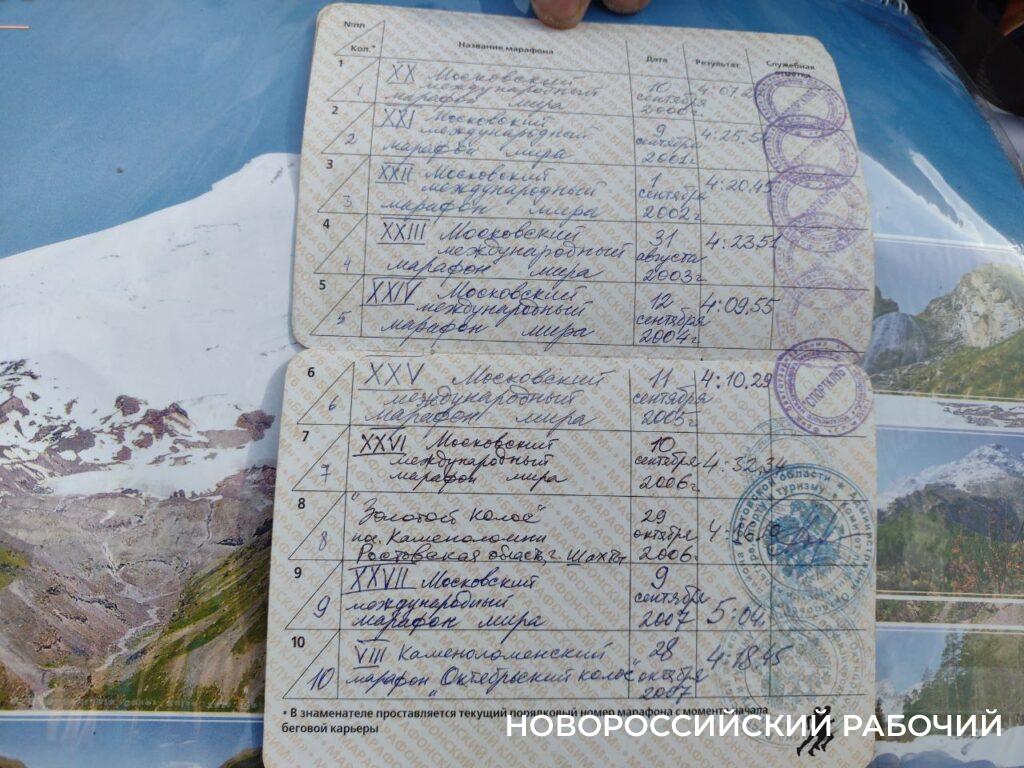 №пп
Кол.*
Название марафона
Дата
Результат
Служебная
отметка
1
1
XX Московский
международный
марафон мира
10
сентября
2000г.
4:07.2
2
2
XXI Московский
международный
марафон мира
9
сентября
2001г.
4:25,51
3
3
XXII Московский
международный
марафон мира
1
сентября
2002г.
4:20,45
4
4
XXIII Московский
международный
марафон мира
31
августа
2003г.
4:23,51
5
5
XXIV Московский
международный
марафон мира
12
сентября
2004г.
4:09,55
6
6
XXV Московский
международный
марафон мира
11
сентября
2005г.
4:10,29
СПОРТКЛУБ
7
7
XXVI Московский
международный
марафон мира
10
сентября
2006г.
4:32,34
8
8
"Золотой колос"
пос. Каменоломни
Ростовская область, г. Шахты
29
октября
2006.
9
9
XXVII Московский
международный
марафон мира
9
сентября
2007
5:04,
10
10
VIII Каменоломенский
марафон "Октябрьский колос"
28
октября
2007
4:18,45
* В знаменателе проставляется текущий порядковый номер марафона с момента начала
беговой карьеры
НОВОРОССИЙСКИЙ РАБОЧИЙ